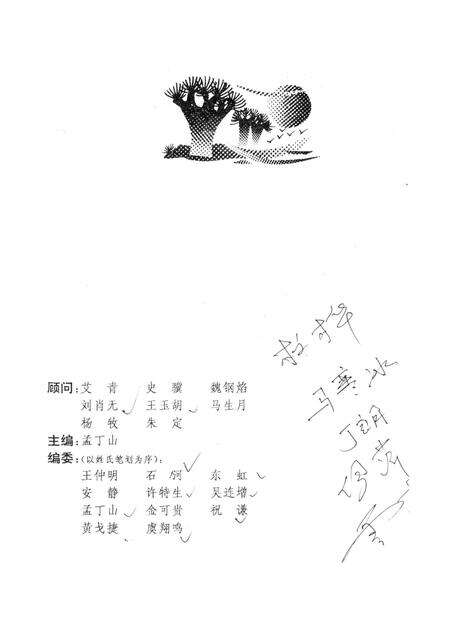 顾问：艾青 史骥 魏钢焰
刘肖无 王玉胡 马生月
杨牧 朱定
主编：孟丁山
编委：（以姓氏笔划为序）：
王仲明 石河 东虹
安静 许特生 吴连增
孟丁山 佥可贵 祝谦
黄戈捷 虞翔鸣
马寒冰